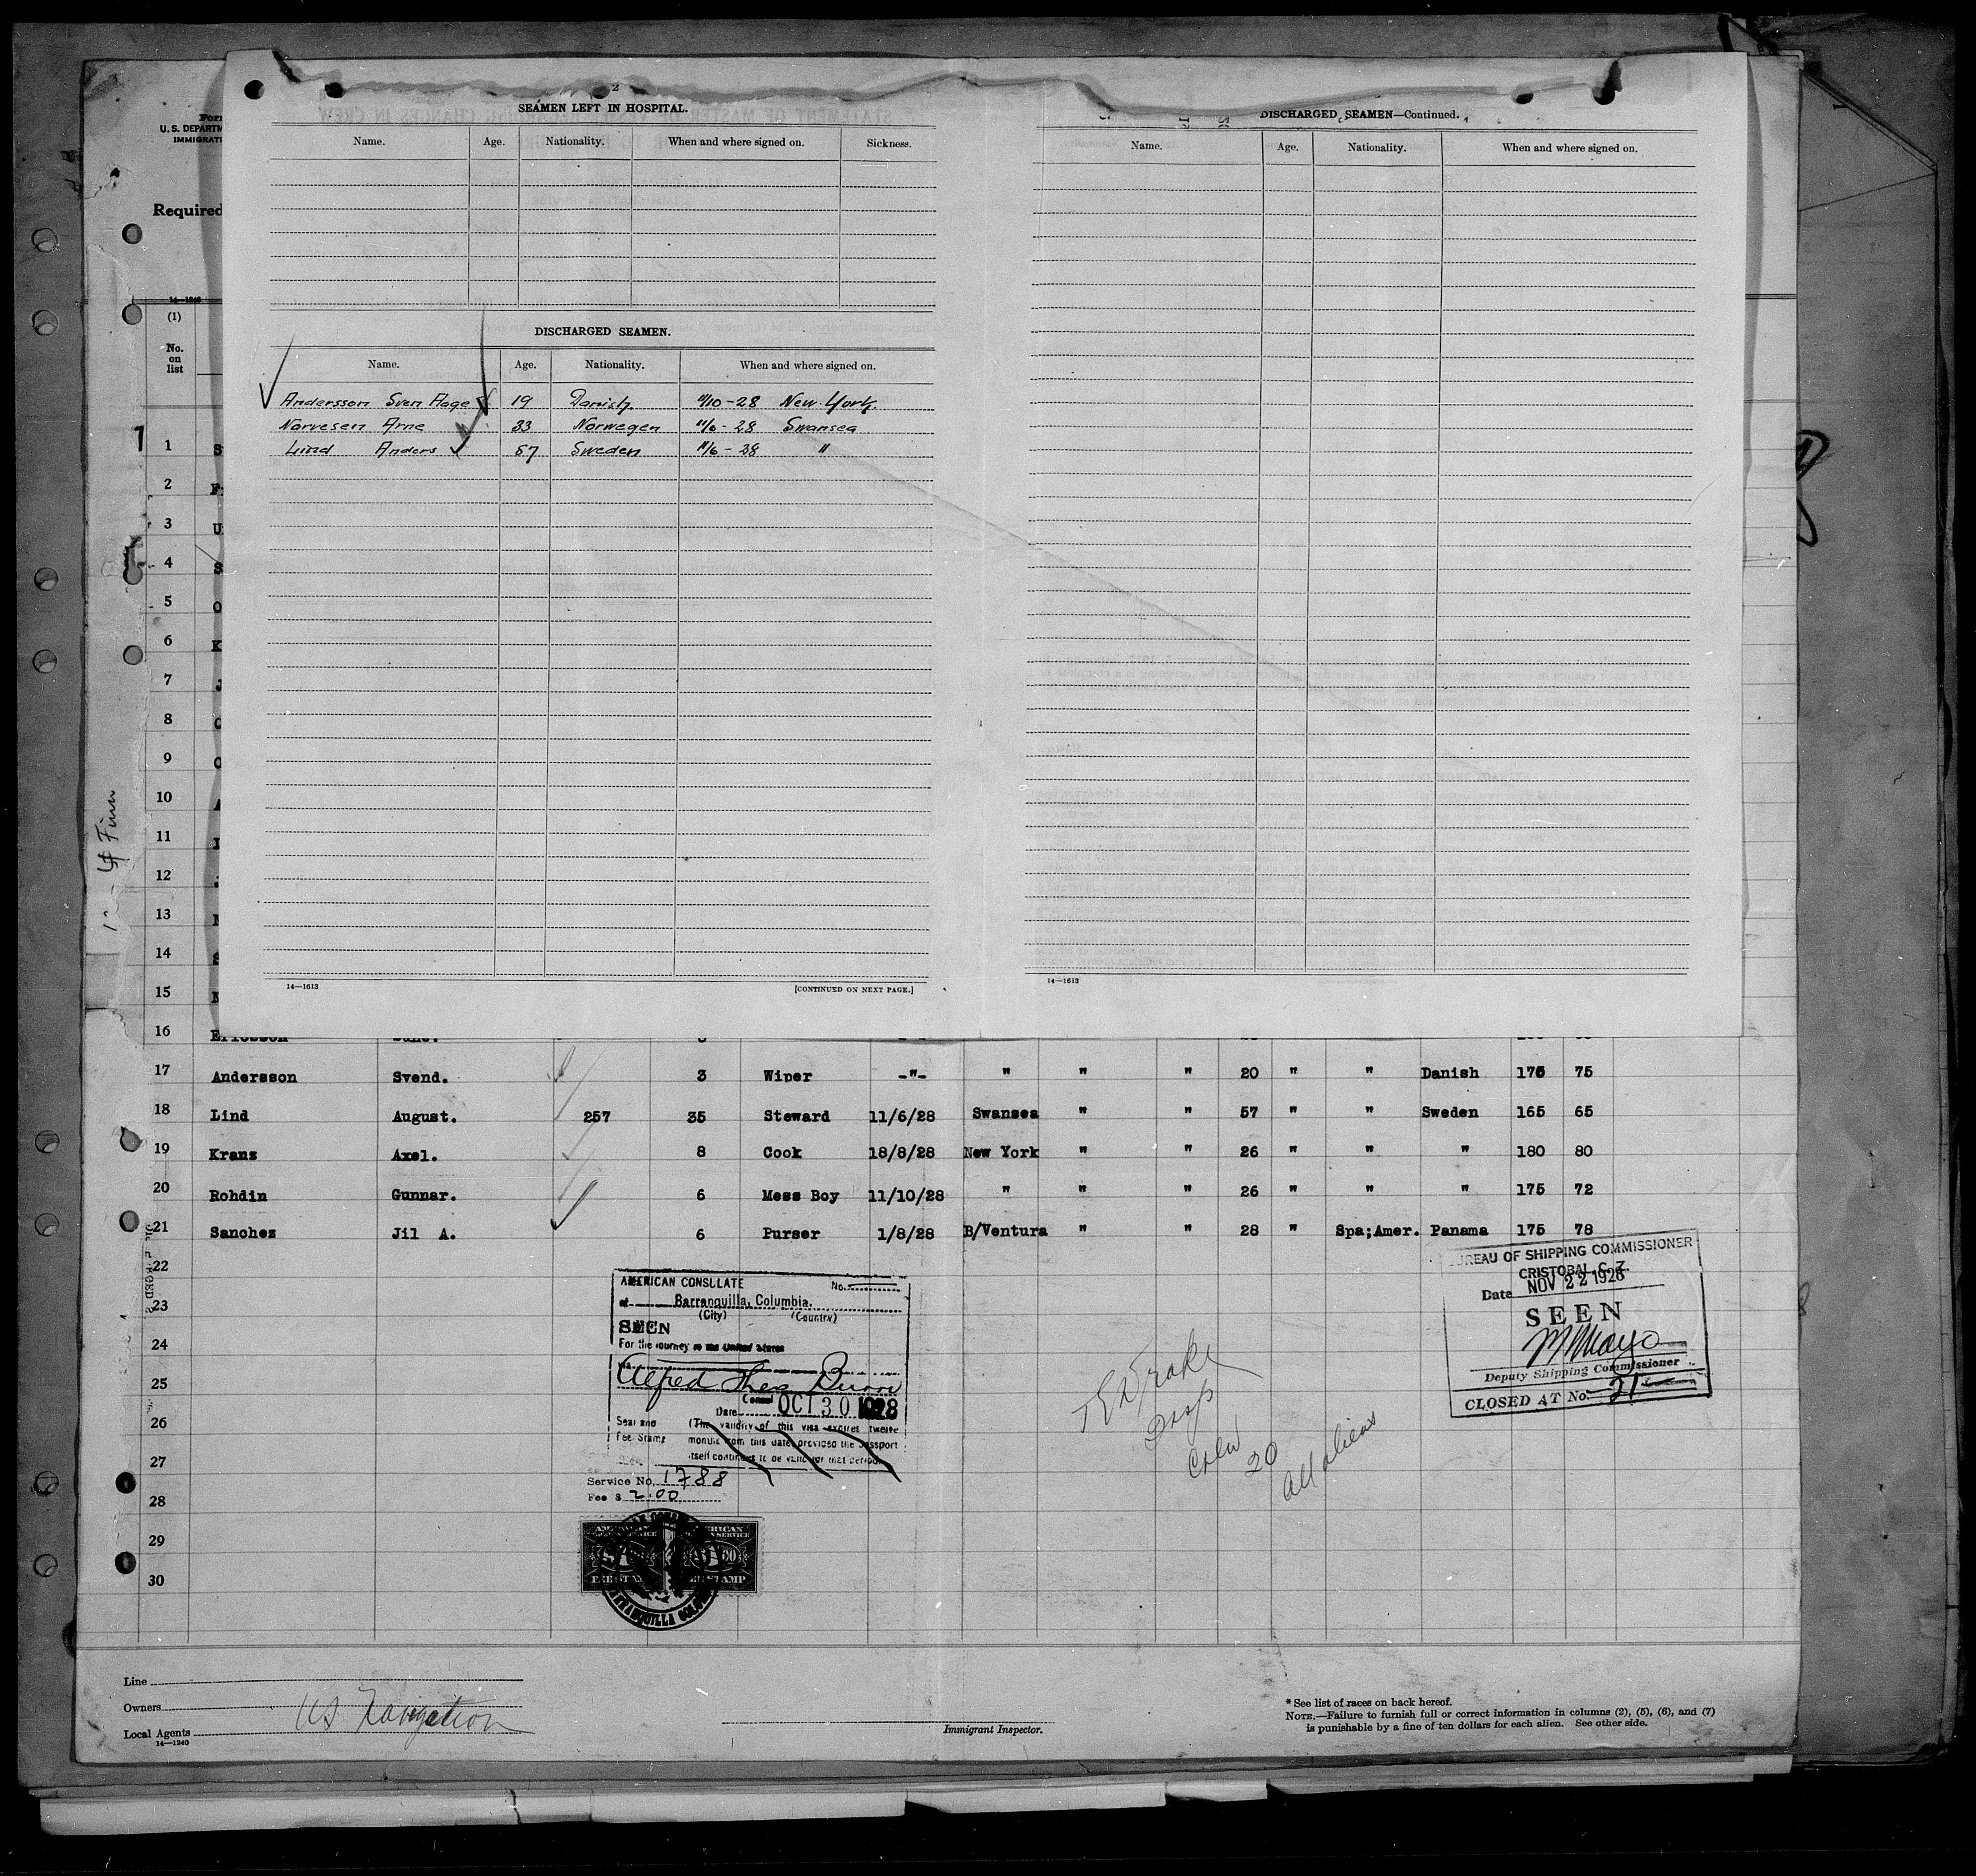 Form
U. S. DEPARTM
IMMIGRATI
Required
14—1240
(1)
No.
on
list
2
SEAMEN LEFT IN HOSPITAL.
Name. Age. Nationality. When and where signed on. Sickness.
DISCHARGED SEAMEN.
Name. Age. Nationality. When and where signed on.
Andersson Sven Aage 19 Danish 11/10-28 New-York.
Norvesen Arne 33 Norwegen 11/6-28 Swansea
Lind Anders 57 Sweden 11/6-28 "
14—1613
[CONTINUED ON NEXT PAGE.]
DISCHARGED SEAMEN—Continued.
Name. Age. Nationality. When and where signed on.
14—1613
1
1 S
2 F
3 U
4 S
5 O
6 K
7 J
8 C
9 O
10
11
12
13
14
15
16 Ericsson
17 Andersson Svend. 3 Wiper -"- " " " 20 " " Danish 176 75
18 Lind August. 257 35 Steward 11/6/28 Swansea " " 57 " " Sweden 165 65
19 Kranz Axel. 8 Cook 18/8/28 New York " " 26 " " " 180 80
20 Rohdin Gunnar. 6 Mess Boy 11/10/28 " " " 26 " " " 175 72
21 Sanchez Jil A. 6 Purser 1/8/28 B/Ventura " " 28 " Spa;Amer. Panama 175 78
22
23
24
25
26
27
28
29
30
Finn
AMERICAN CONSULATE No.
at Barranquilla, Columbia.
(City) (Country)
SEEN
For the journey to the United States
Via
Alfred Theo Burri
Consul
Date OCT 30 1928
Seal and
Fee Stamp
(The validity of this visa expires twelve
months from this date, provided the passport
itself continues to be valid for that period.)
Service No. 1788
Fee $ 2.00
AMERICAN
SERVICE
FEE STAMP
BARRANQUILLA
T E Drake
Insp
Crew
20
All aliens
BUREAU OF SHIPPING COMMISSIONER
CRISTOBAL C. Z.
Date NOV 22 1928
SEEN
M Mayo
Deputy Shipping Commissioner
CLOSED AT No. 21
Line
Owners
Local Agents
US Navigation
14—1240
Immigrant Inspector.
* See list of races on back hereof.
NOTE.—Failure to furnish full or correct information in columns (2), (5), (6), and (7)
is punishable by a fine of ten dollars for each alien. See other side.